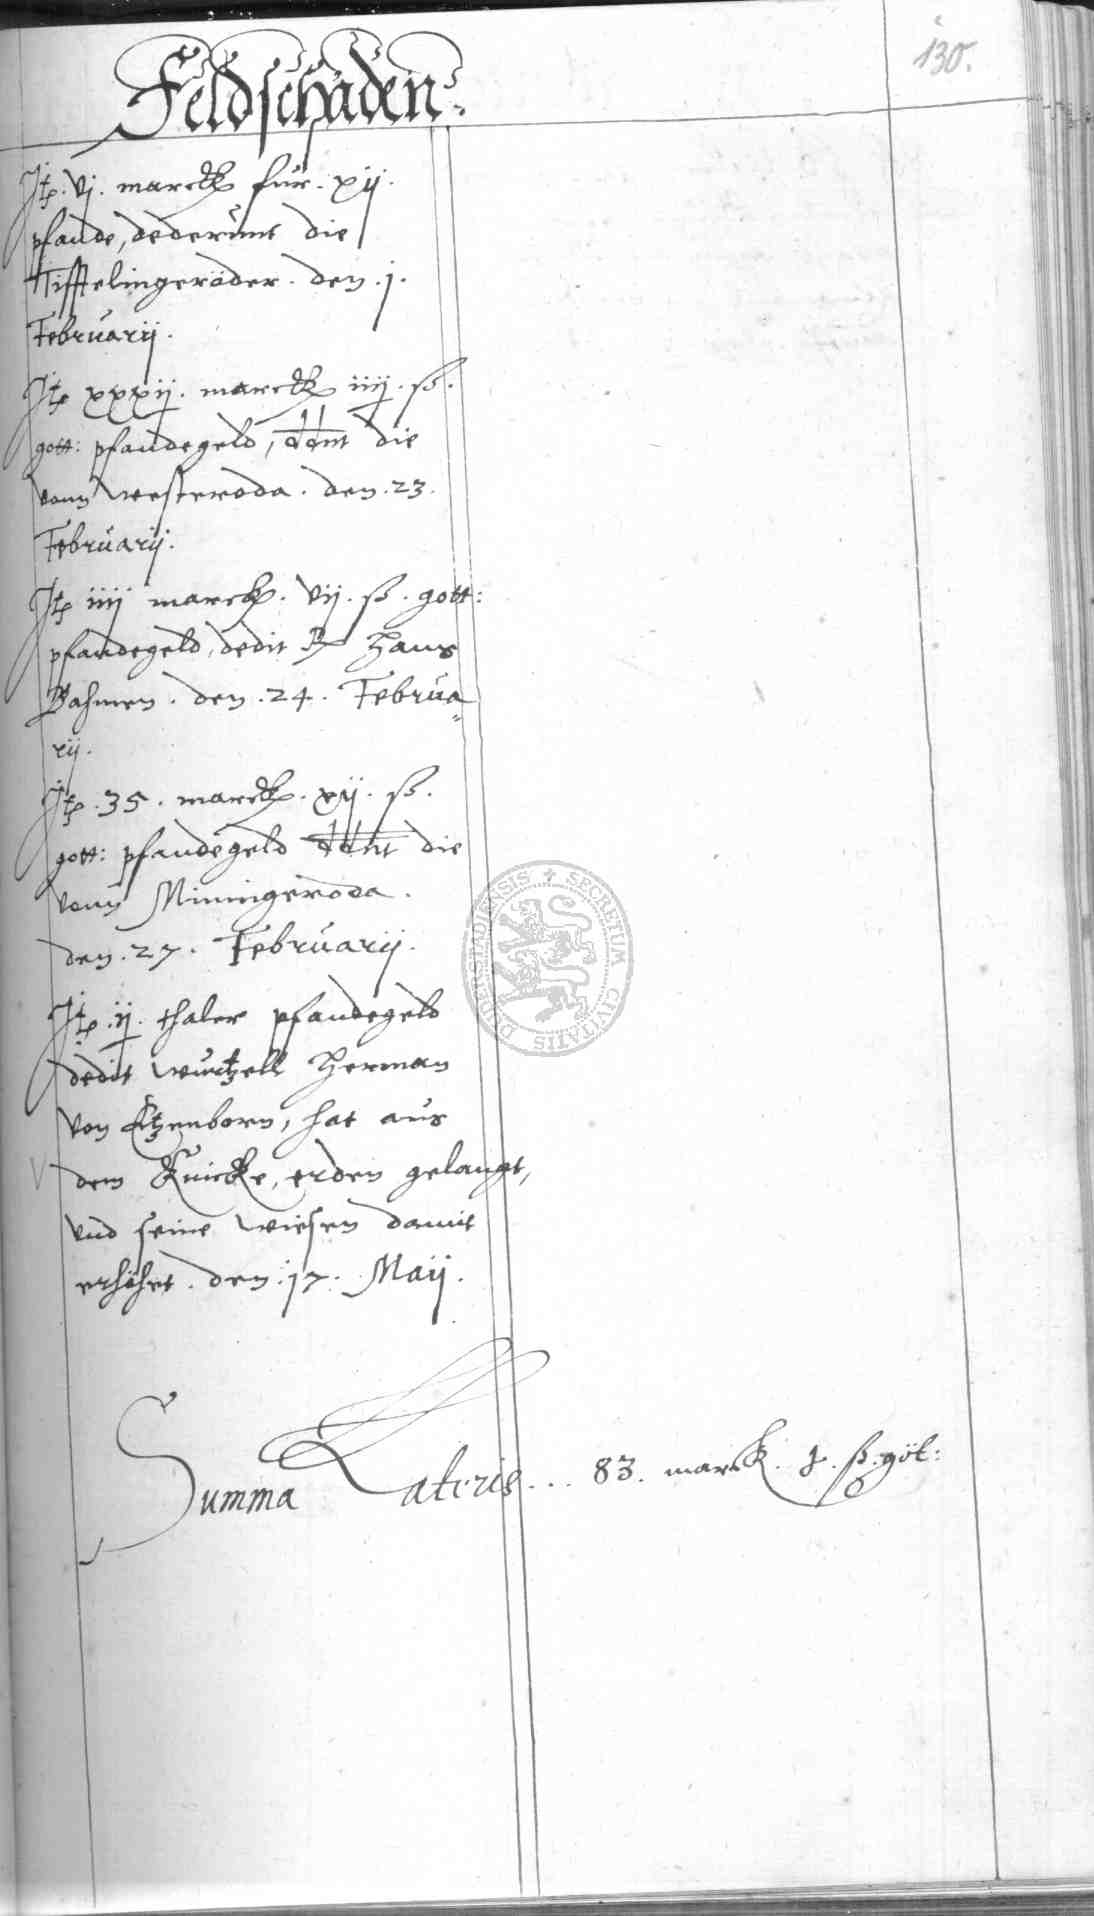 130.
Feldschäden.
Jtp. vj. marckk für. xij.
pfande, dederunt die
Tifftelingeröder. den .j.
Februarij.
Jtp xxxij. marckk iiij. ß.
gott: pfandegeld, ddnt die
vonn Westeroda. den. 23.
Februarij.
Jtp iiij marckk. vij. ß. gott:
pfandegeld, dedit Hans
Bahmen. den. 24. Februa=
rij.
Jtp. 35. marckk. xij. ß.
gott: pfandegeld ddnt die
vonn Minningeroda.
den. 27. Februarij.
Jtp. ij. thaler pfandegeld
dedit Wurtzell Herman
von Etzenborn, hat aus
dem Knicke, erden gelangt,
vnd seine wiesen damit
erhöhet. den. 17. Maij.
Summa Lateris... 83. marck. j. ß. göt:
SECRETUM CIVITATIS DUDERSTADIENSIS